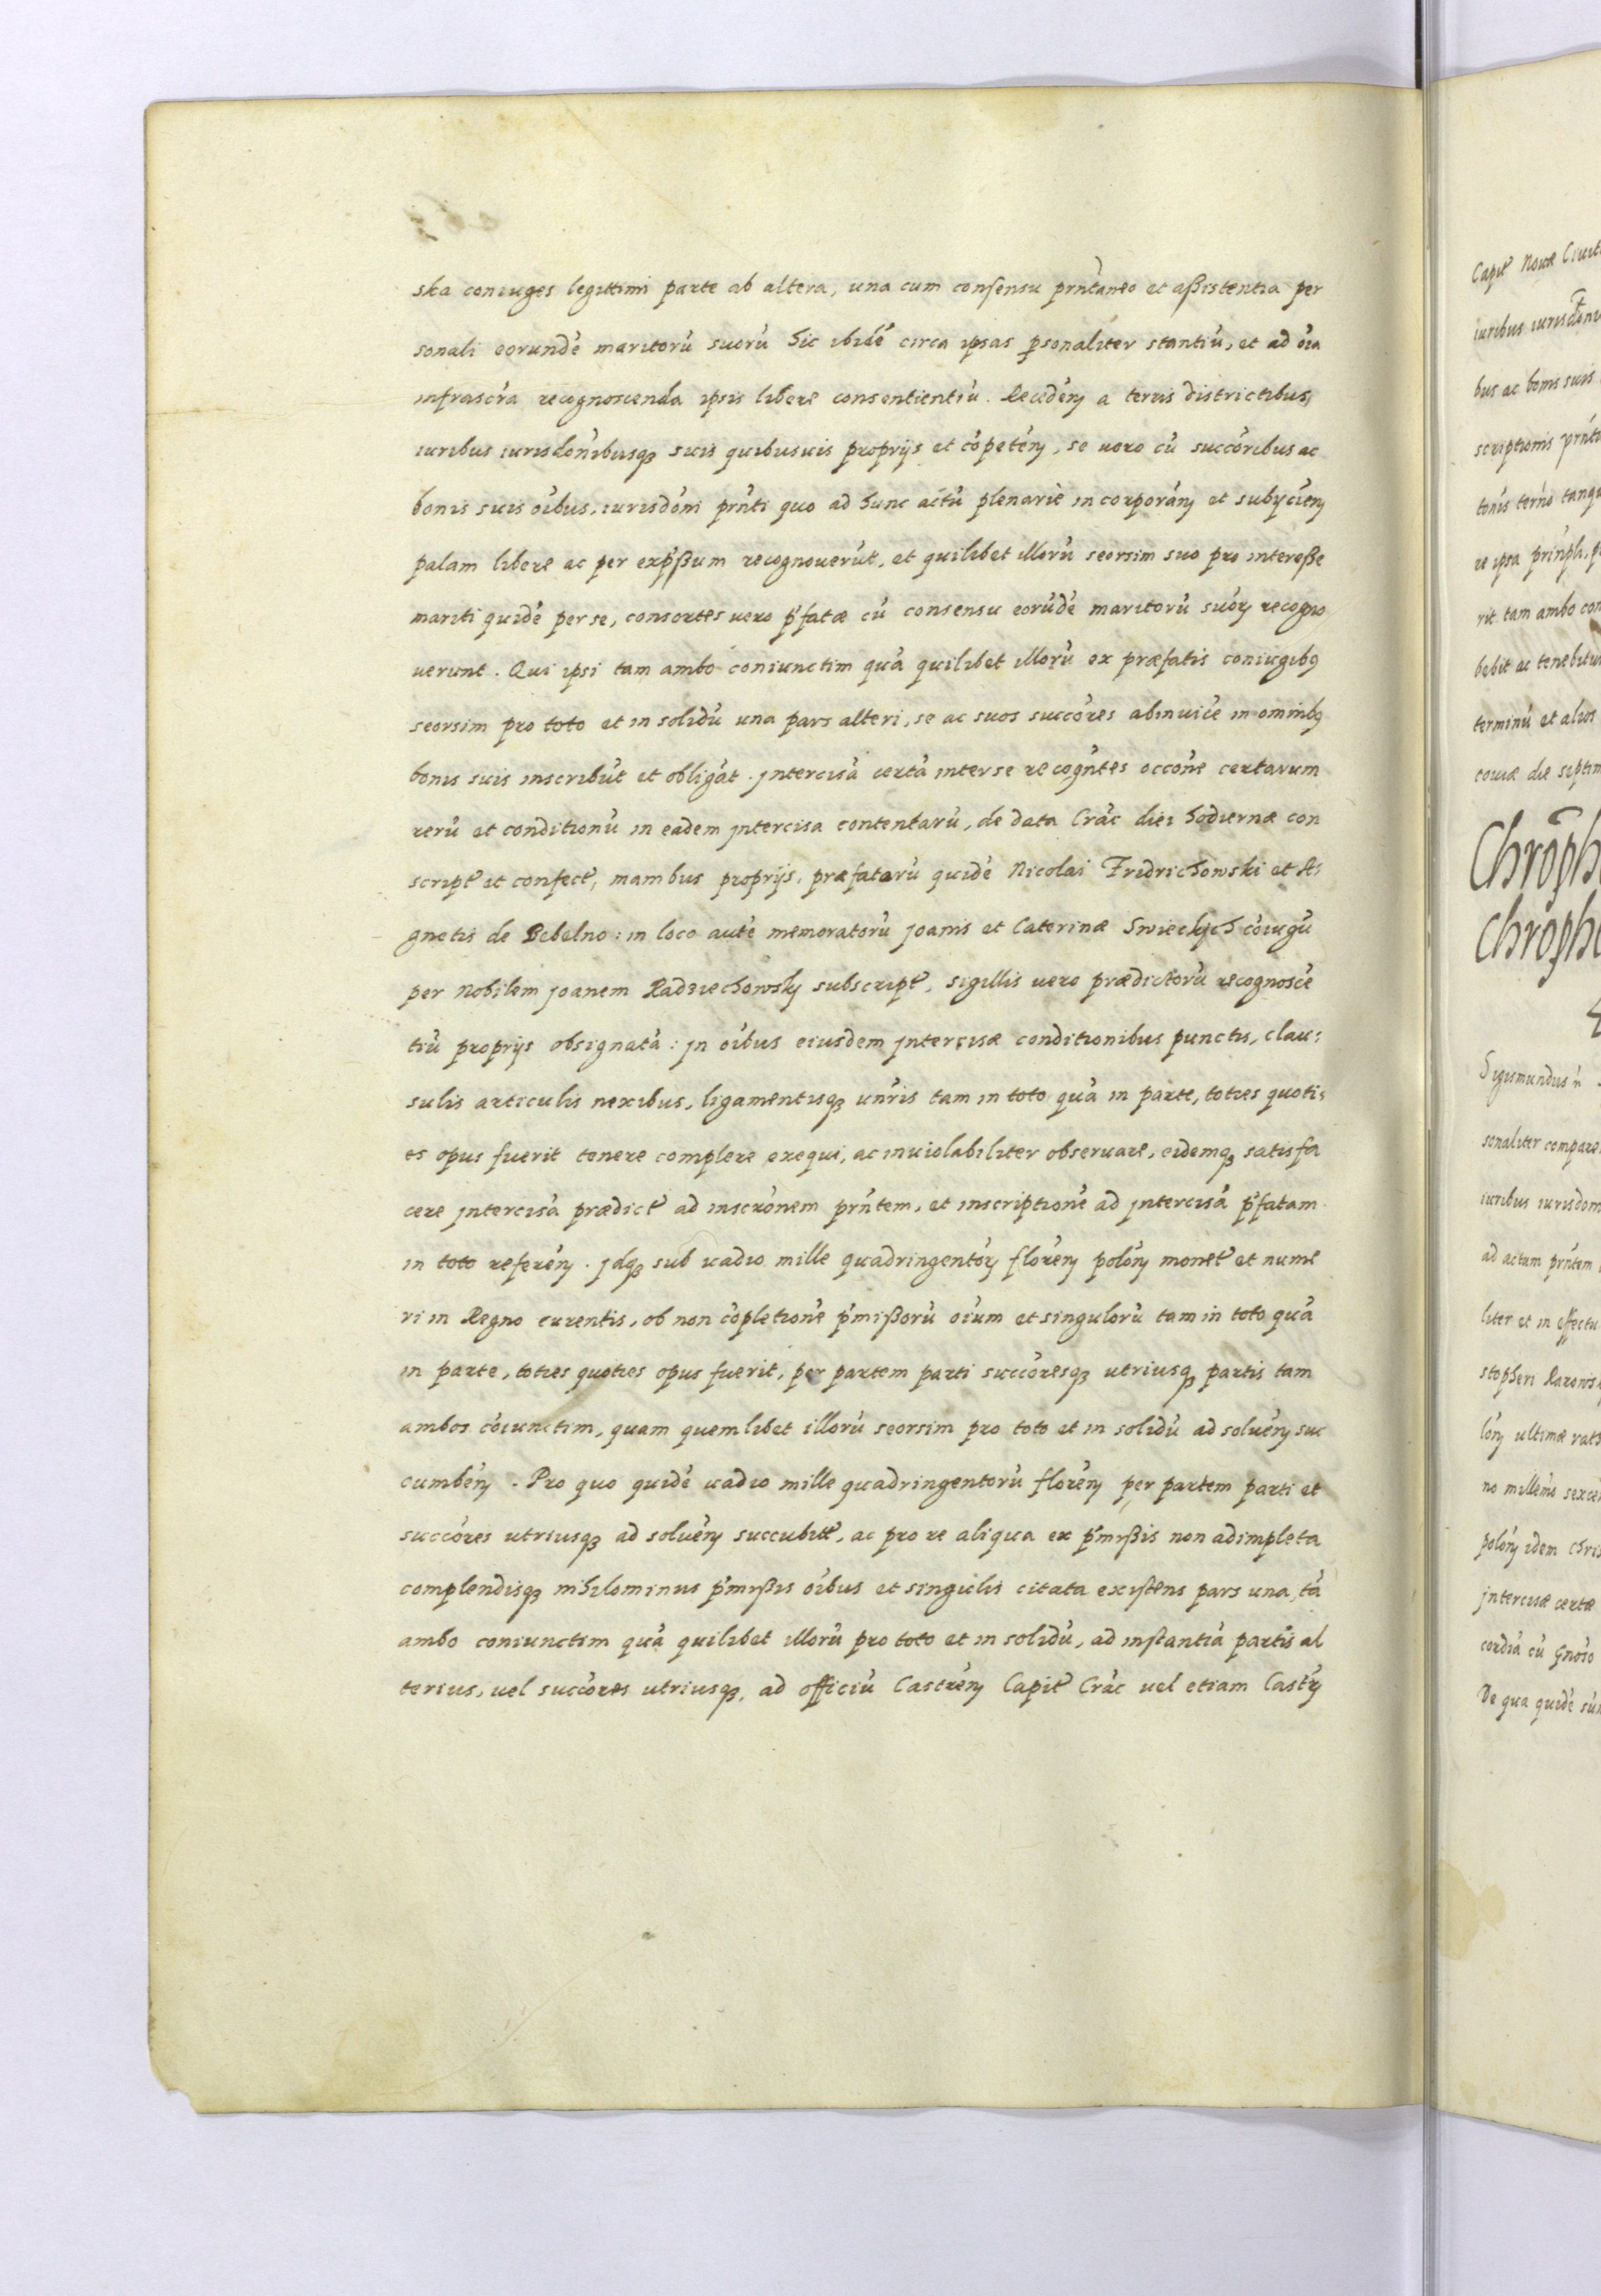 ska coniuges legittimi parte ab altera, una cum consensu prn̄taneo et aßistentia per
sonali eorundē maritorū suorū hic ibidē circa ipsas psonaliter stantiū, et ad oīa
infrascr̄a recognoscenda ipsis libere consentientiū. Recedēn a terris districtibus,
iuribus iurisdōnibusq3 suis quibusuis proprijs et cōpetēn, se uero cū succōribus ac
bonis suis oībus, iurisdōni prn̄ti quo ad hunc actū plenariè incorporān et subijciēn
palam libere ac per exp̄ßum recognouerūt, et quilibet illorū seorsim suo pro intereße
mariti quidē per se, consortes uero p̄fatæ cū consensu eorūdē maritorū suōr recogno
uerunt. Qui ipsi tam ambo coniunctim quā quilibet illorū ex præfatis coniugibq
seorsim pro toto et in solidū una pars alteri, se ac suos succōres abinuicē in ominibq
bonis suis inscribūt et obligāt. jntercisā certā inter se recogn̄tes occōne certarum
rerū et conditionū in eadem jntercisa contentarū, de data Crāc diei hodiernæ con
script̄ et confect̄, manibus proprijs, præfatarū quidē Nicolai Fridrichowski et A:
gnetis de Bebelno: in loco autē memoratorū joānis et Caterinæ Swieckich cōiugū
per Nobilem joanem Radziechowsky subscript̄, sigillis uero prædictorū recognoscē
tiū proprijs obsignatā: jn oībus eiusdem jntercisæ conditionibus punctis, clau:
sulis articulis nexibus, ligamentisq3 un̄ris tam in toto quā in parte, toties quoti:
es opus fuerit tenere complere exequi, ac inuiolabiliter obseruare, eidemq3 satisfa
cere jntercisā prædict̄ ad inscrōnem prn̄tem, et inscriptionē ad jntercisā p̄fatam
in toto referēn. jdq3 sub uadio mille quadringentōr florēn polōn monet̄ et nume
ri in Regno curentis, ob non cōpletionē p̄mißorū oīum et singulorū tam in toto quā
in parte, toties quoties opus fuerit, per partem parti succōresq3 utriusq3 partis tam
ambos cōiunctim, quam quemlibet illorū seorsim pro toto et in solidū ad soluēn suc
cumbēn. Pro quo quidē uadio mille quadringentorū florēn per partem parti et
succōres utriusq3 ad soluēn succubitt̄, ac pro re aliqua ex p̄mißis non adimpleta
complendisq3 nihilominus p̄mißis oībus et singulis citata existens pars una, tā
ambo coniunctim quā quilibet illorū pro toto et in solidū, ad instantiā partis al
terius, uel succōres utriusq3, ad officiū Castrēn Capit̄ Crāc uel etiam Castr̄
Capit̄ Nouæ Ciuit
iuribus
bus ac bonis suis
scriptionis prn̄ti
re ipsa
rit tam ambo con
bebit ac tenebitur
terminū et alios
die septim
Sigismundus
sonaliter compare
iuribus iurisdom
ad actum prn̄tem
liter et in effectu
stopheri
ultimæ
no
polōn idem Chris
jntercisæ certæ
cordiā cū
De qua quidē